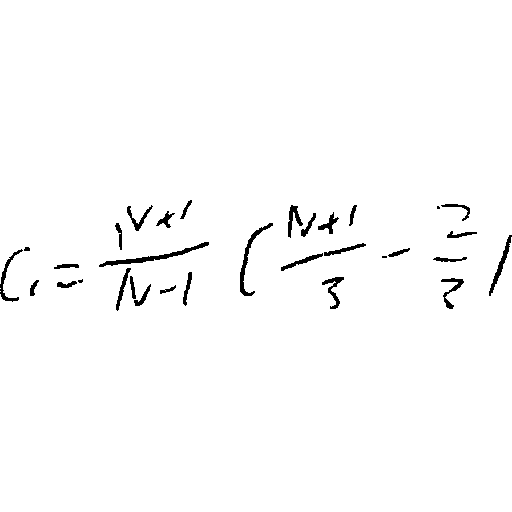 C₁ = \frac{N+1}{N-1} ( \frac{N+1}{3} - \frac{2}{3} )